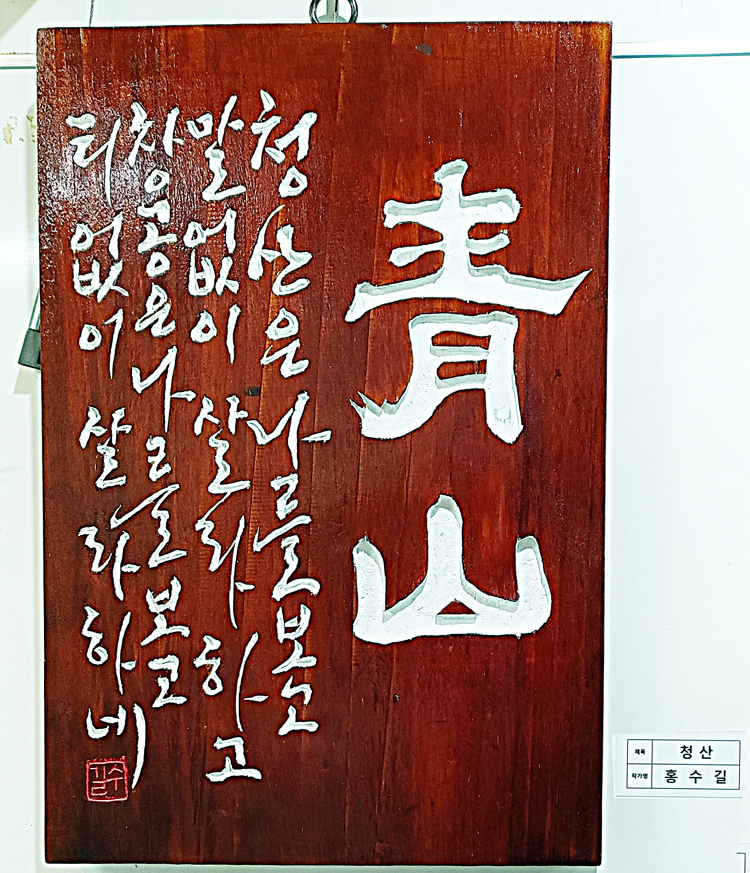 青山
청산은 나를 보고
말없이 살라 하고
창공은 나를 보고
티없이 살라 하네
수길
제목 청산
작가명 홍수길